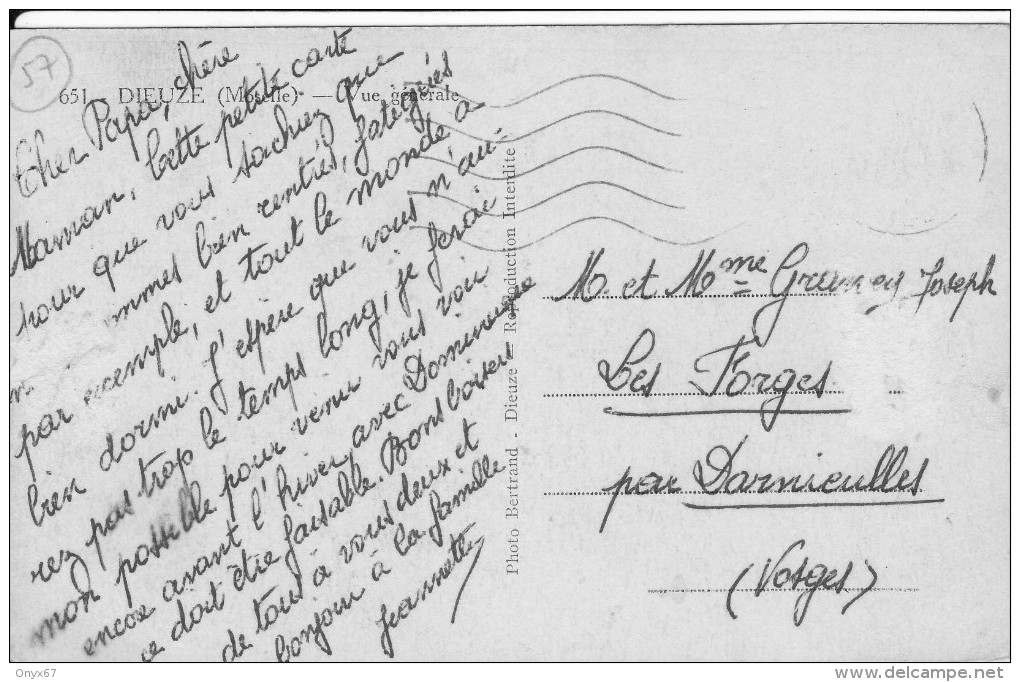 57
651 - DIEUZE (Moselle) — Vue générale
Cher Papa, chère
Maman, Cette petite carte
pour que vous sachiez que
mmes bien rentrés, fatigués
par exemple, et tout le monde a
bien dormi. J'espère que vous n'au
rez pas trop le temps long, je ferai
mon possible pour venir vous voir
encore avant l'hiver, avec Dominique
ce doit être faisable. Bons baisers
de tous à vous deux et
bonjour à la famille
Jeannette
Photo Bertrand - Dieuze - Reproduction Interdite
M. et Mme Joseph
Les Forges
par Darnieulles
(Vosges)
Onyx67
www.delcampe.net